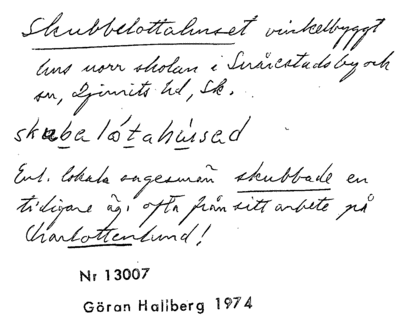 Skubbelottahuset vinkelbyggt
hus norr skolan i Snårestads by och
sn, Ljunits hd, Sk.
skubalåtahúsəd
Enl. lokala sagesmän skubbade en
tidigare äg. ofta från sitt arbete på
Charlottenlund!
Nr 13007
Göran Hallberg 1974